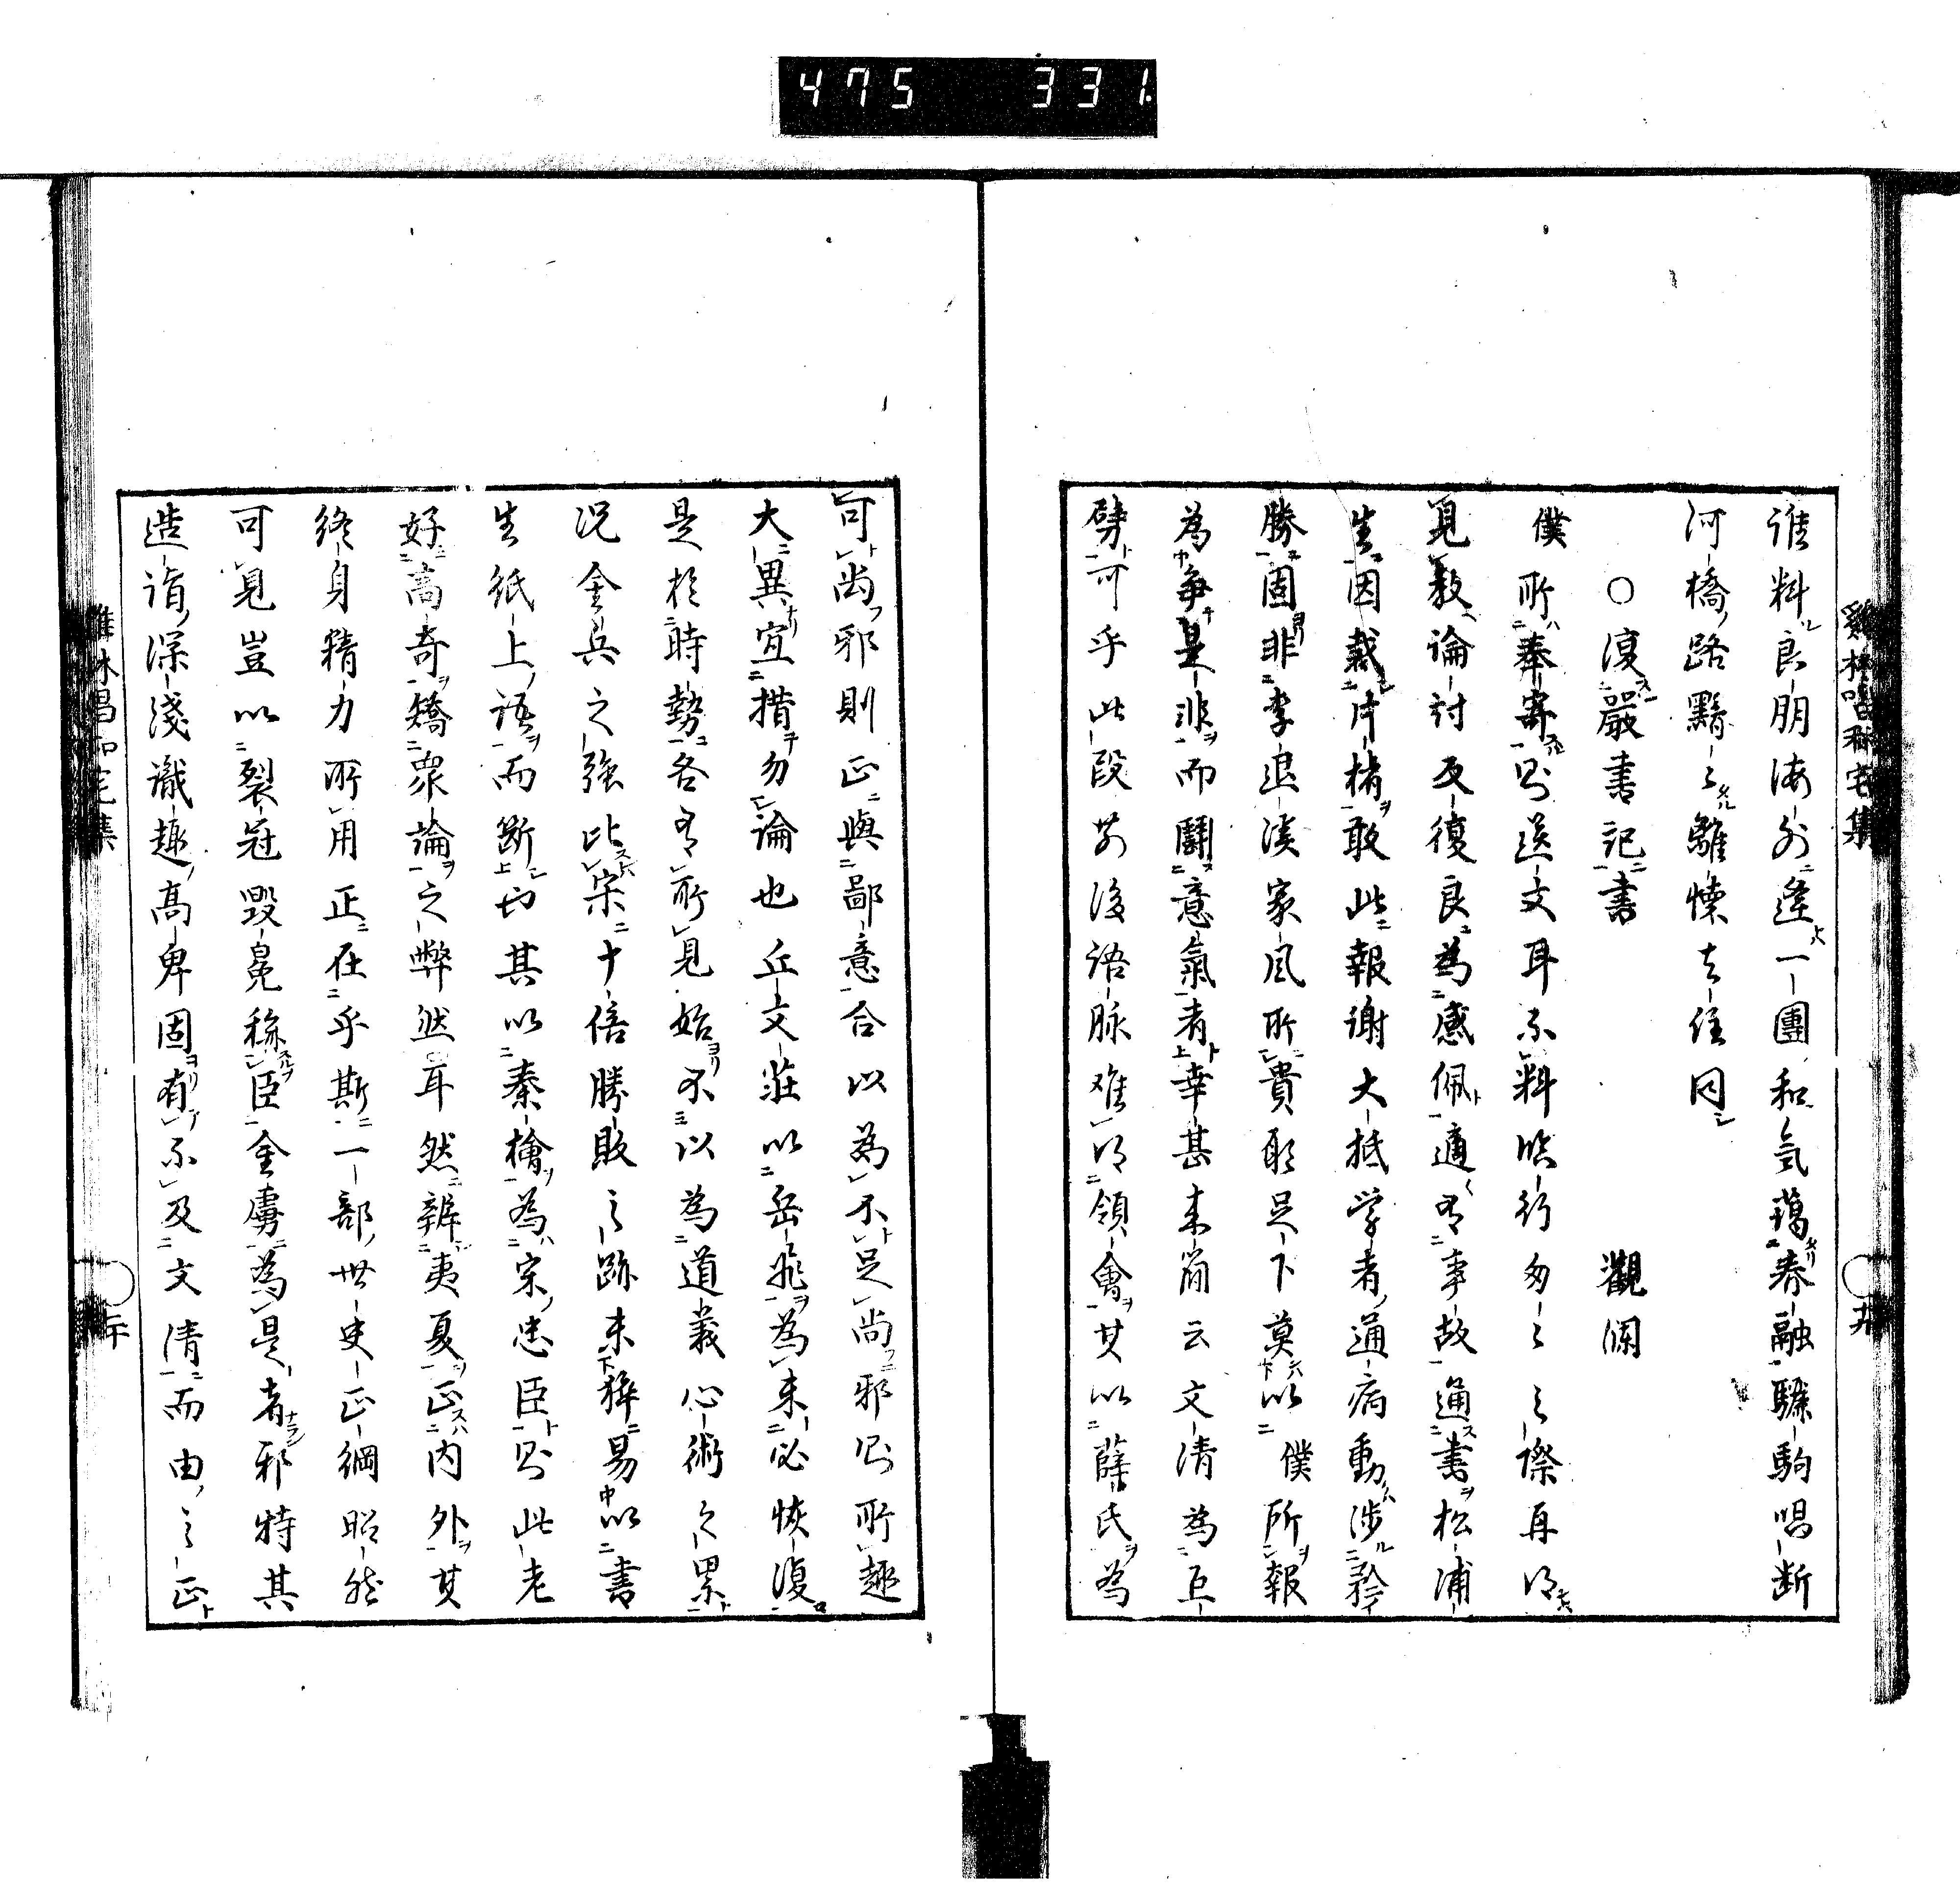 475 331
誰料良朋海外逢一團和気藹春融驪駒唱断
河橋路黯々離懐去住同
○復嚴書記書 觀瀾
僕所奉寄只送文耳不料臨行匆々之際再得
見教論討反復良為感佩適有事故通書松浦
生因裁片楮敢此報謝大抵学者通病動渉矜
勝固非李退溪家風所貴耶足下莫以僕所報
為争是非而鬪意氣者幸甚来簡云文清為巨
擘可乎此段前後語脉难得領會其以薛氏為
可尚邪則正與鄙意合以為不足尚邪則所趣
大異宜措勿論也丘文莊以岳飛為未必恢復
是於時勢各有所見始不以為道義心術之累
况金兵之強比宋十倍勝敗之跡未嘗易以書
生紙上語而断切其以秦檜為宋忠臣則此老
好高奇矯衆論之弊然耳然辨夷夏正内外其
終身精力所用正在乎斯一部世史正綱昭然
可見豈以裂冠毀冕稱臣金虜為是者邪特其
造詣深淺識趣高卑固有不及文清而由之正
雞林唱和宅集 十九
雞林唱和宅集 二十